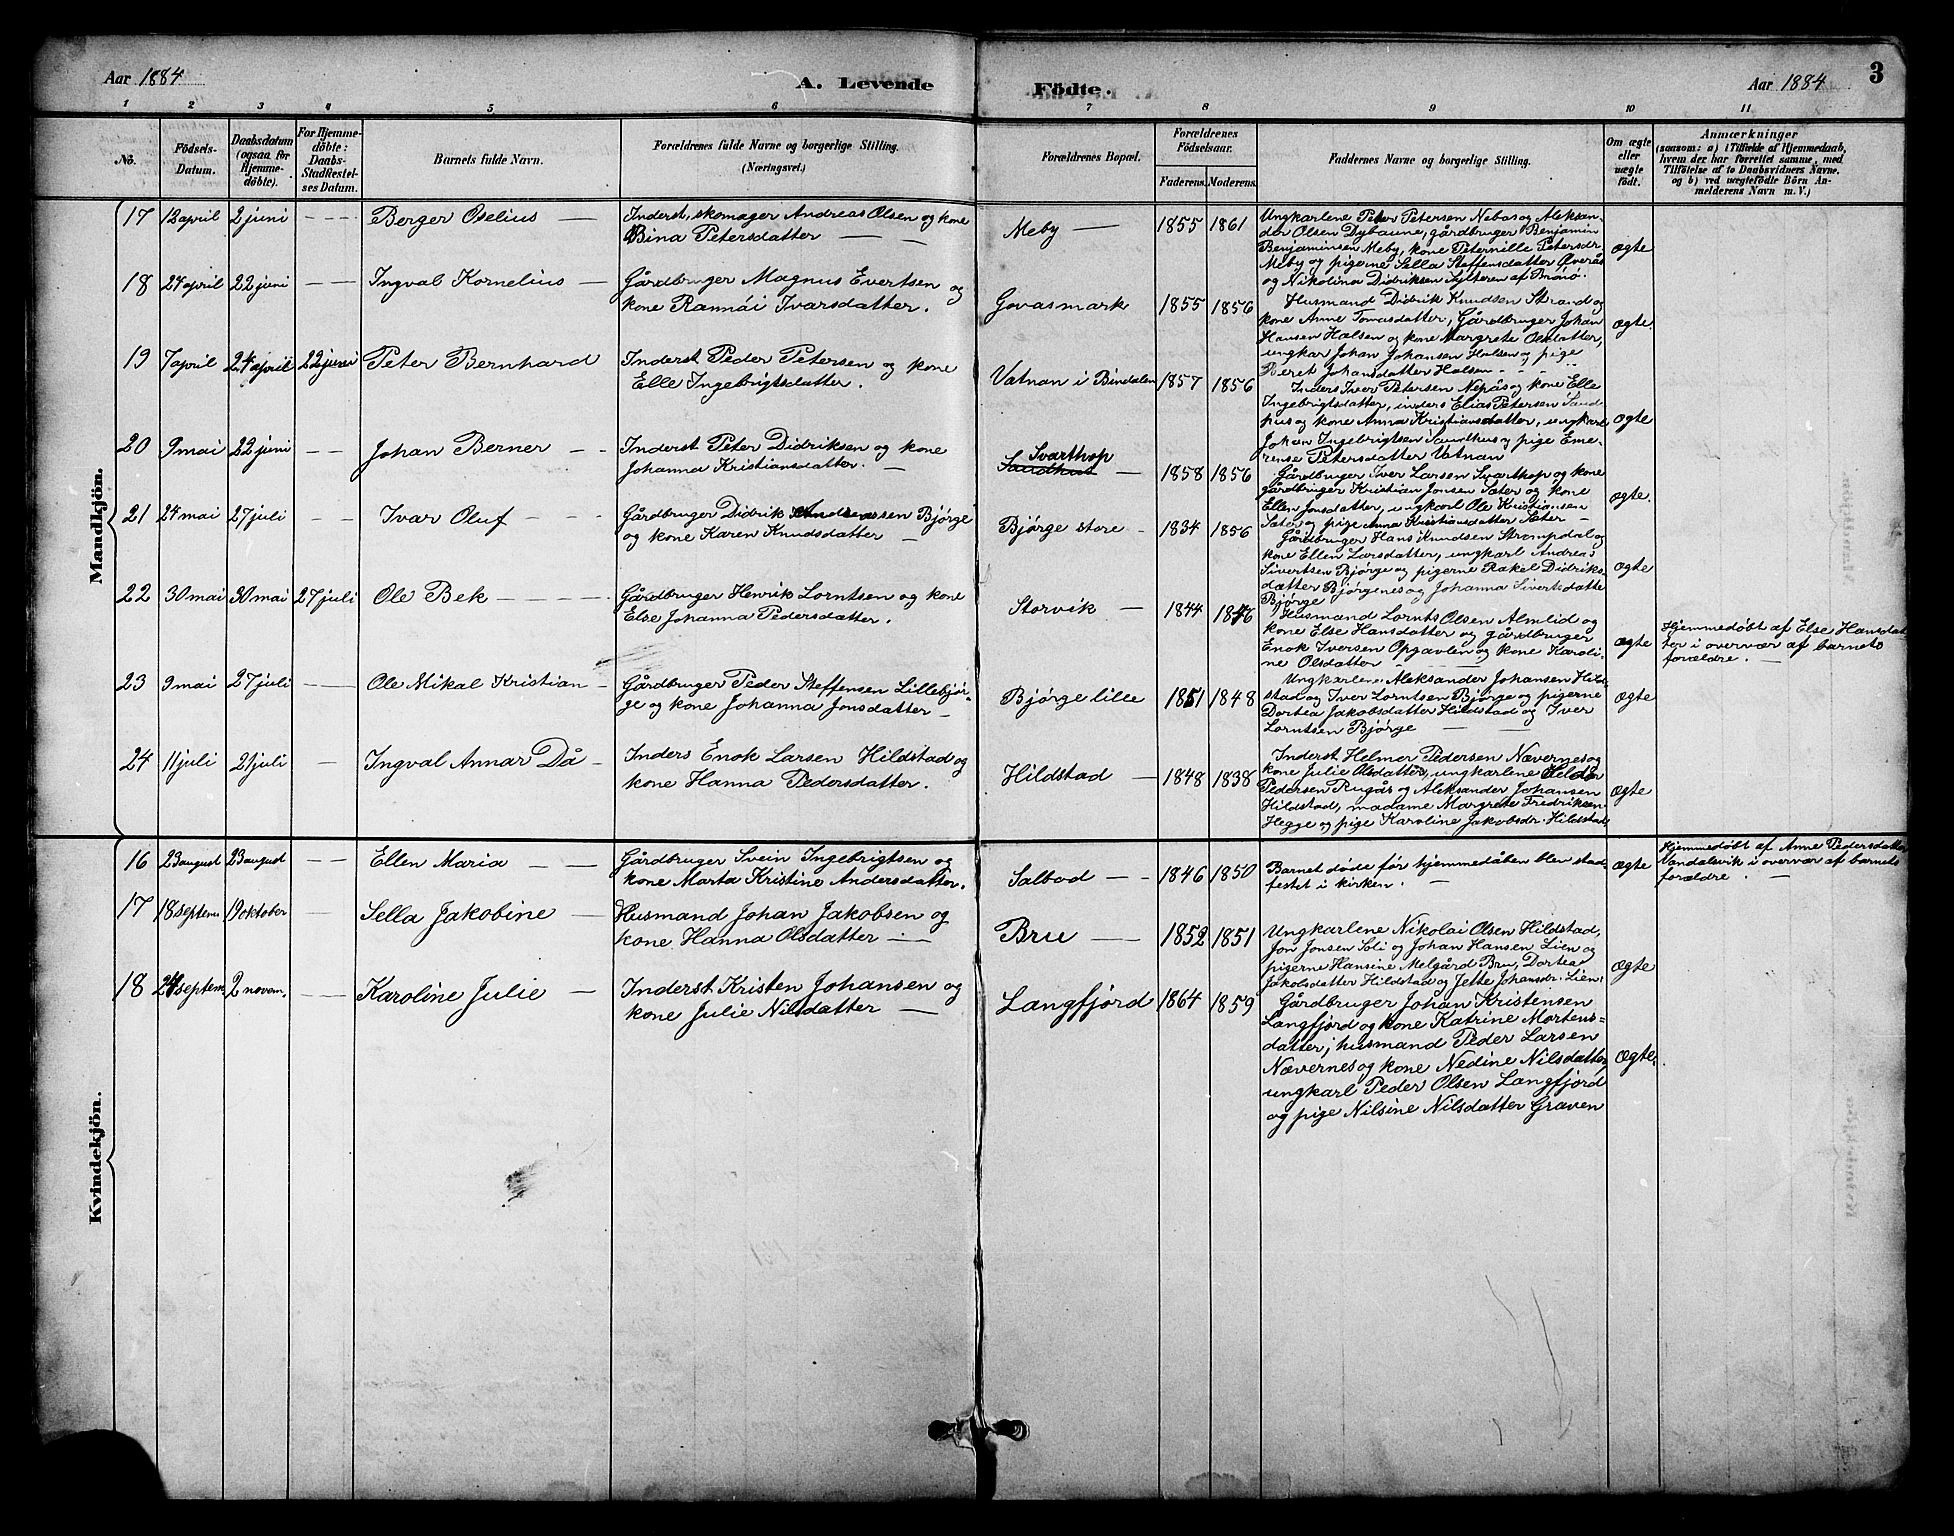 Aar 1884
A. Levende
Födte.
Aar 1884
3
1 2 3 4 5 6 7 8 9 10 11
No.
Födsels-Datum.
Daabsdatum (ogsaa for Hjemmedöbte).
For Hjemmedöbte: Daabs-Stadfæstelses Datum.
Barnets fulde Navn.
Forældrenes fulde Navne og borgerlige Stilling.
(Næringsvei.)
Forældrenes Bopæl.
Forældrenes Födselsaar.
Faderens. Moderens.
Faddernes Navne og borgerlige Stilling.
Om ægte eller uægte födt.
Anmærkninger
(saasom: a) i Tilfælde af Hjemmedaab, hvem der har forrettet samme, med Tilföielse af to Daabsvidners Navne, og b) ved uægtefödte Börn Anmelderens Navn m. V.)
Mandkjön.
17 12 april 2 juni - - - Berger Oselius —
Inderst, skomager Andreas Olsen og kone
Bina Petersdatter — —
Meby — 1855 1861
Ungkarlene Peter Petersen Nebos og Aleksan-
der Olsen Dybaune, gårdbruger Benjamin
Benjaminsen Meby, kone Peternille Petersdr
Meby og pigerne Sella Steffensdatter Øverås
og Nikolina Didriksen Sylteren af Brønø.
ægte
18 24 april 22 juni - - Ingval Kornelius —
Gårdbruger Magnus Evertsen og
kone Rannåi Ivarsdatter.
Govasmark 1855 1856
Husmand Didrik Knudsen Strand og
kone Anne Tomasdatter, Gårdbruger Johan
Hansen Halsen og kone Margrete Olsdatter,
ungkar Johan Johansen Halsen og pige
Beret Johansdatter Halsen - - - -
ægte
19 7 april 24 april 22 juni Peter Bernhard
Inderst Peder Petersen og kone
Elle Ingebrigtsdatter.
Vatnan i Bindalen 1857 1856
Inders Iver Petersen Nepås og kone Elle
Ingebrigtsdatter, inders Elias Petersen Sand-
hus og kone Anna Kristiansdatter, ungkarl
Johan Ingebrigtsen Sandhus og pige Eme-
rense Petersdatter Vatnan
ægte
20 9 mai 22 juni - - Johan Berner - -
Inderst Peter Didriksen og kone
Johanna Kristiansdatter. —
Svarthop
Sandhus — 1858 1856
Gårdbruger Iver Larsen Svarthop og kone
gårdbruger Kristian Jonsen Sæter og kone
Ellen Jonsdatter, ungkarl Ole Kristiansen
Sæter og pige Anna Kristiansdatter Sæter —
ægte.
21 24 mai 27 juli - - Ivar Oluf - -
Gårdbruger Didrik Andreassen Bjørge
og kone Karen Knudsdatter —
Bjørge store - 1834 1856
Gårdbruger Hans Knudsen Strompdal og
kone Ellen Larsdatter, ungkarl Andreas
Sivertsen Bjørge og pigerne Rakel Didriks-
datter Bjørgenes og Johanna Sivertsdatte
Bjørge
ægte
22 30 mai 30 mai 27 juli Ole Bek - - - -
Gårdbruger Henrik Lorntsen og kone
Else Johanna Pedersdatter.
Storvik — 1844 1846
Husmand Lornts Olsen Almlid og
kone Else Hansdatter og gårdbruger
Enok Iversen Opgavlen og kone Karoli-
ne Olsdatter - - -
ægte
Hjemmedøbt af Else Hansdat
ter i overvær af barnets
forældre. —
23 9 mai 27 juli - - Ole Mikal Kristian -
Gårdbruger Peder Steffensen Lillebjør-
ge og kone Johanna Jonsdatter —
Bjørge lille 1851 1848
Ungkarlene Aleksander Johansen Hild-
stad og Iver Lorntsen Bjørge og pigerne
Dortea Jakobsdatter Hildstad og Iver
Lorntsen Bjørge — —
ægte
24 11 juli 21 juli - Ingval Annar Då -
Inders Enok Larsen Hildstad og
kone Hanna Pedersdatter.
Hildstad — 1848 1838
Inderst Helmer Pedersen Nævernes og
kone Julie Olsdatter, ungkarlene Peder
Pedersen Rugås og Aleksander Johansen
Hildstad, madame Margrete Fredriksen
Hegge og pige Karoline Jakobsdr. Hildstad
ægte
Kvindekjön.
16 23 august 23 august - - Ellen Maria — —
Gårdbruger Svein Ingebrigtsen og
kone Marta Kristine Andersdatter.
Salbod - - 1846 1850
Barnet døde før hjemmedåben blev stad
festet i kirken. —
ægte
Hjemmedøbt af Anne Pedersdatter
Vandalsvik i overvær af barnets
forældre. —
17 18 septem 19 oktober — Sella Jakobine —
Husmand Johan Jakobsen og
kone Hanna Olsdatter - —
Bru — 1852 1851
Ungkarlene Nikolai Olsen Hildstad,
Jon Jonsen Soli og Johan Hansen Lien og
pigerne Hansine Melgård Bru, Dortea
Jakobsdatter Hildstad og Jette Johansdr. Lien
ægte
18 24 septem 2 novem. - - Karoline Julie —
Inderst Kristen Johansen og
kone Julie Nilsdatter —
Langfjord 1864 1859
Gårdbruger Johan Kristensen
Langfjord og kone Katrine Mortens-
datter; husmand Peder Larsen
Nævernes og kone Nedine Nilsdatter,
ungkarl Peder Olsen Langfjord
og pige Nilsine Nilsdatter Graven
ægte.